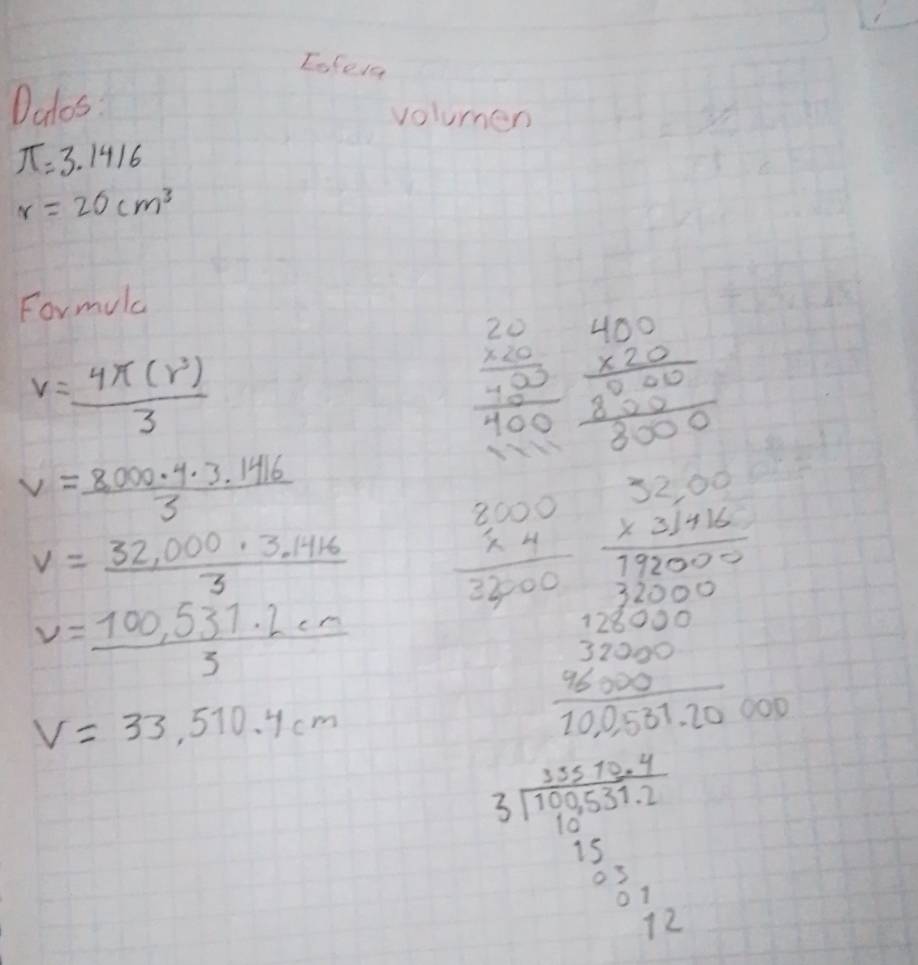 Esfera
Datos:
volumen
π=3.1416
r = 20cm³
Formula
V = 4π(r³)
3
V = 8,000·4·3.1416
3
V = 32,000 · 3.1416
3
V = 100,531.2 cm
3
V = 33,510.4 cm
20
x20
00
40
400
400
x20
000
800
8000
8000
x 4
32,000
32,00
x 31416
192000
32000
128000
32000
96000
10,0,531.20 000
33510.4
3 100,531.2
10
15
03
01
12